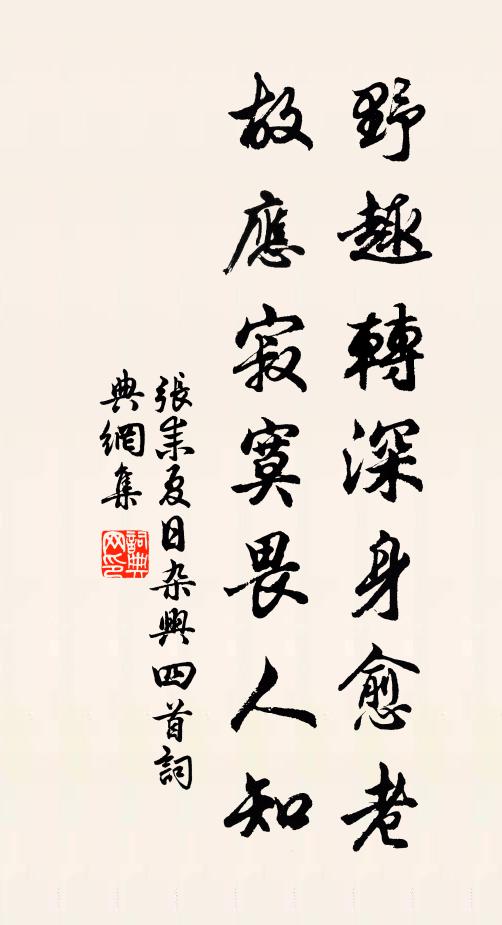 野趣轉深身愈老
故應寂寞畏人知
張耒夏日杂興四首詞
典網集
詞典网印